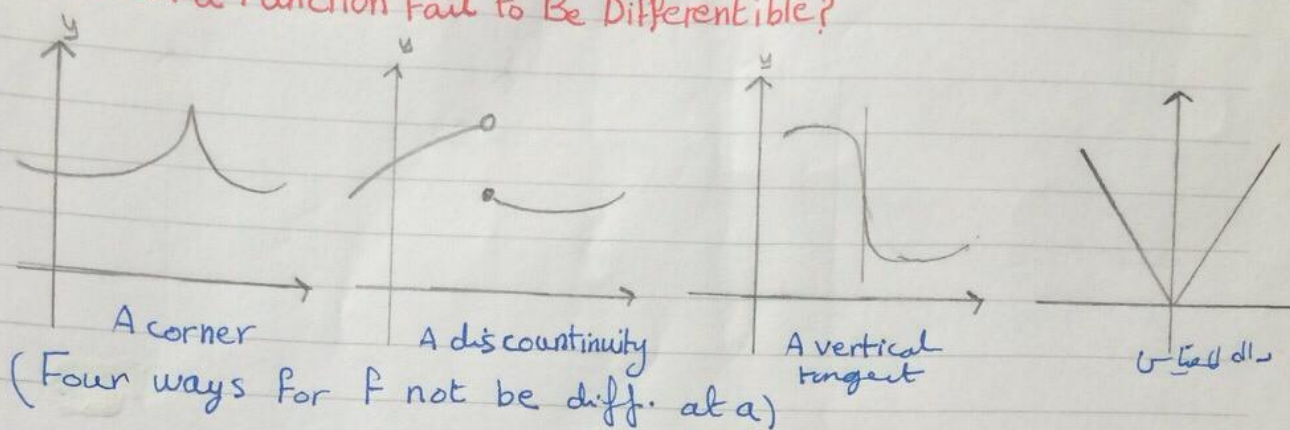 a Function Fail to Be Differentible?
y
y
y
A corner
A discountinuity
A vertical
tangect
(Four ways for f not be diff. at a)